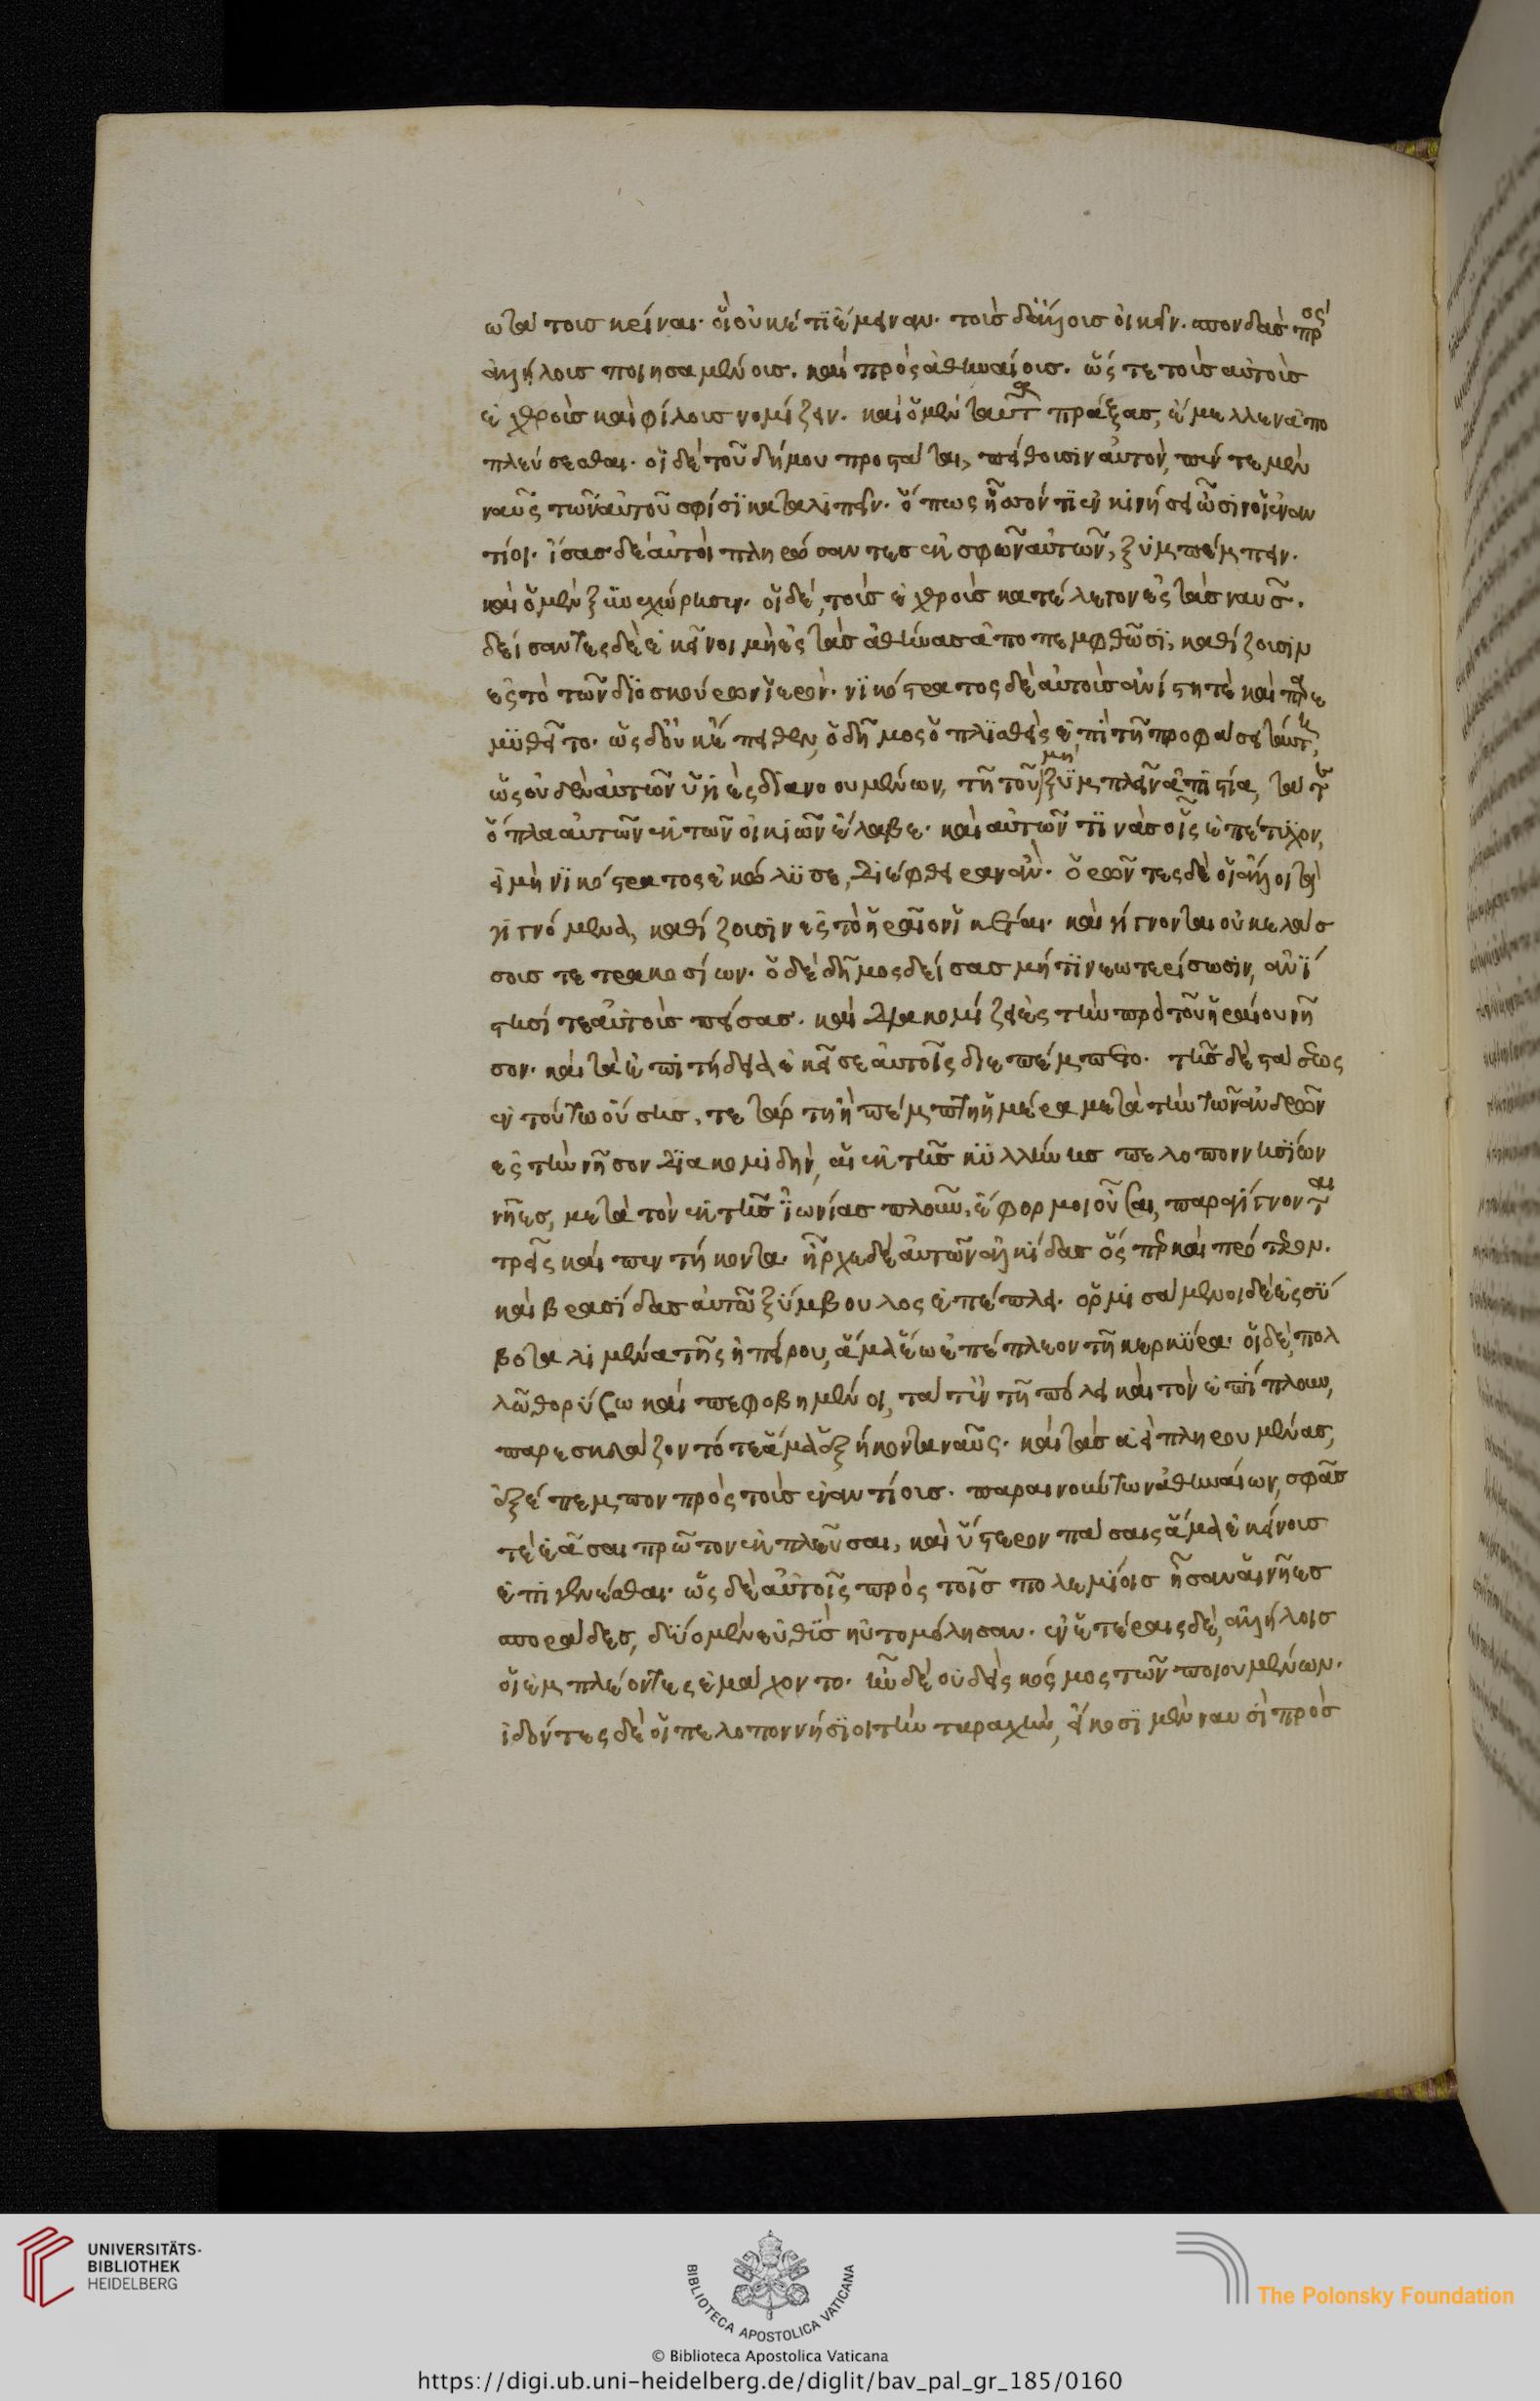 ωτάτους κρίναι. οἳ οὐκέτι ἔμειναν. τοὺς δἄλλους οἰκεῖν. σπονδὰς πρὸς
ἀλλήλους ποιησαμένους. καὶ πρὸς ἀθηναίους. ὥστε τοὺς αὐτοὺς
ἐχθροὺς καὶ φίλους νομίζειν. καὶ ὁ μὲν ταῦτα πράξας, ἔμελλεν ἀπο
πλεύσεσθαι. οἱ δὲ τοῦ δήμου προστάται, πείθουσιν αὐτὸν, πέντε μὲν
ναῦς τῶν αὐτοῦ σφίσι καταλιπεῖν. ὅπως ἧσσόν τι ἐν κινήσει ὦσιν οἱ ἐναν
τίοι. ἴσας δὲ αὐτοὶ πληρώσαντες ἐκ σφῶν αὐτῶν, ξυμπέμπειν.
καὶ ὁ μὲν ξυνεχώρησεν. οἱ δὲ, τοὺς ἐχθροὺς κατέλεγον ἐς τὰς ναῦς.
δείσαντες δὲ ἐκεῖνοι μὴ ἐς τὰς ἀθήνας ἀποπεμφθῶσι, καθίζουσιν
ἐς τὸ τῶν διοσκούρων ἱερόν. νικόστρατος δὲ αὐτοὺς ἀνίστη τὲ καὶ παρε
μυθεῖτο. ὡς δοὐκ ἔπειθεν, ὁ δῆμος ὁπλισθεὶς ἐπὶ τῇ προφάσει ταύτῃ,
ὡς οὐδὲν αὐτῶν ὑγιὲς διανοουμένων, τῇ τοῦ μὴ ξυμπλεῖν ἀπιστία, τά τε
ὅπλα αὐτῶν ἐκ τῶν οἰκιῶν ἔλαβε. καὶ αὐτῶν τινὰς οἷς ἐπέτυχον,
εἰ μὴ νικόστρατος ἐκώλυσε, διέφθειραν ἄν. ὁρῶντες δὲ οἱ ἄλλοι τὰ
γιγνόμενα, καθίζουσιν ἐς τὸ ἡραῖον ἱκέται. καὶ γίγνονται οὐκ ἐλάσ
σους τετρακοσίων. ὁ δὲ δῆμος δείσας μή τι νεωτερίσωσιν, ἀνί
στησί τε αὐτοὺς πείσας. καὶ διακομίζει ἐς τὴν πρὸ τοῦ ἡραίου νῆ
σον. καὶ τὰ ἐπιτήδεια ἐκεῖσε αὐτοῖς διεπέμπετο. τῆς δὲ στάσεως
ἐν τούτω οὔσης, τετάρτη ἢ πέμπτη ἡμέρα μετὰ τὴν τῶν ἀνδρῶν
ἐς τὴν νῆσον διακομιδὴν, αἱ ἐκ τῆς κυλλήνης πελοποννησίων
νῆες, μετὰ τὸν ἐκ τῆς ἰωνίας πλοῦν, ἔφορμοι οὖσαι, παραγίγνονται
τρεῖς καὶ πεντήκοντα. ἦρχε δὲ αὐτῶν ἀλκίδας ὅσπερ καὶ πρότερον.
καὶ βρασίδας αὐτῶ ξύμβουλος ἐπέπλει. ὁρμισάμενοι δὲ ἐς σύ
βοτα λιμένα τῆς ἠπείρου, ἅμα ἕω ἐπέπλεον τῇ κερκύρα. οἱ δὲ, πολ
λῶ θορύβω καὶ πεφοβημένοι, τά τ' ἐν τῇ πόλει καὶ τὸν ἐπίπλουν,
παρεσκευάζοντό τε ἅμα ἑξήκοντα ναῦς. καὶ τὰς ἀεὶ πληρουμένας,
ἐξέπεμπον πρὸς τοὺς ἐναντίους. παραινούντων ἀθηναίων, σφᾶς
τὲ ἐᾶσαι πρῶτον ἐκπλεῦσαι, καὶ ὕστερον πάσαις ἅμα ἐκείνους
ἐπιγενέσθαι. ὡς δὲ αὐτοῖς πρὸς τοῖς πολεμίοις ἦσαν αἱ νῆες
σποράδες, δύο μὲν εὐθὺς ηὐτομόλησαν. ἐν ἑτέραις δὲ, ἀλλήλοις
οἱ ἐμπλέοντες ἐμάχοντο. ἦν δὲ οὐδεὶς κόσμος τῶν ποιουμένων.
ἰδόντες δὲ οἱ πελοποννήσιοι τὴν ταραχὴν, εἴκοσι μὲν ναυσὶ πρὸς
UNIVERSITÄTS-
BIBLIOTHEK
HEIDELBERG
BIBLIOTECA APOSTOLICA VATICANA
The Polonsky Foundation
© Biblioteca Apostolica Vaticana
https://digi.ub.uni-heidelberg.de/diglit/bav_pal_gr_185/0160